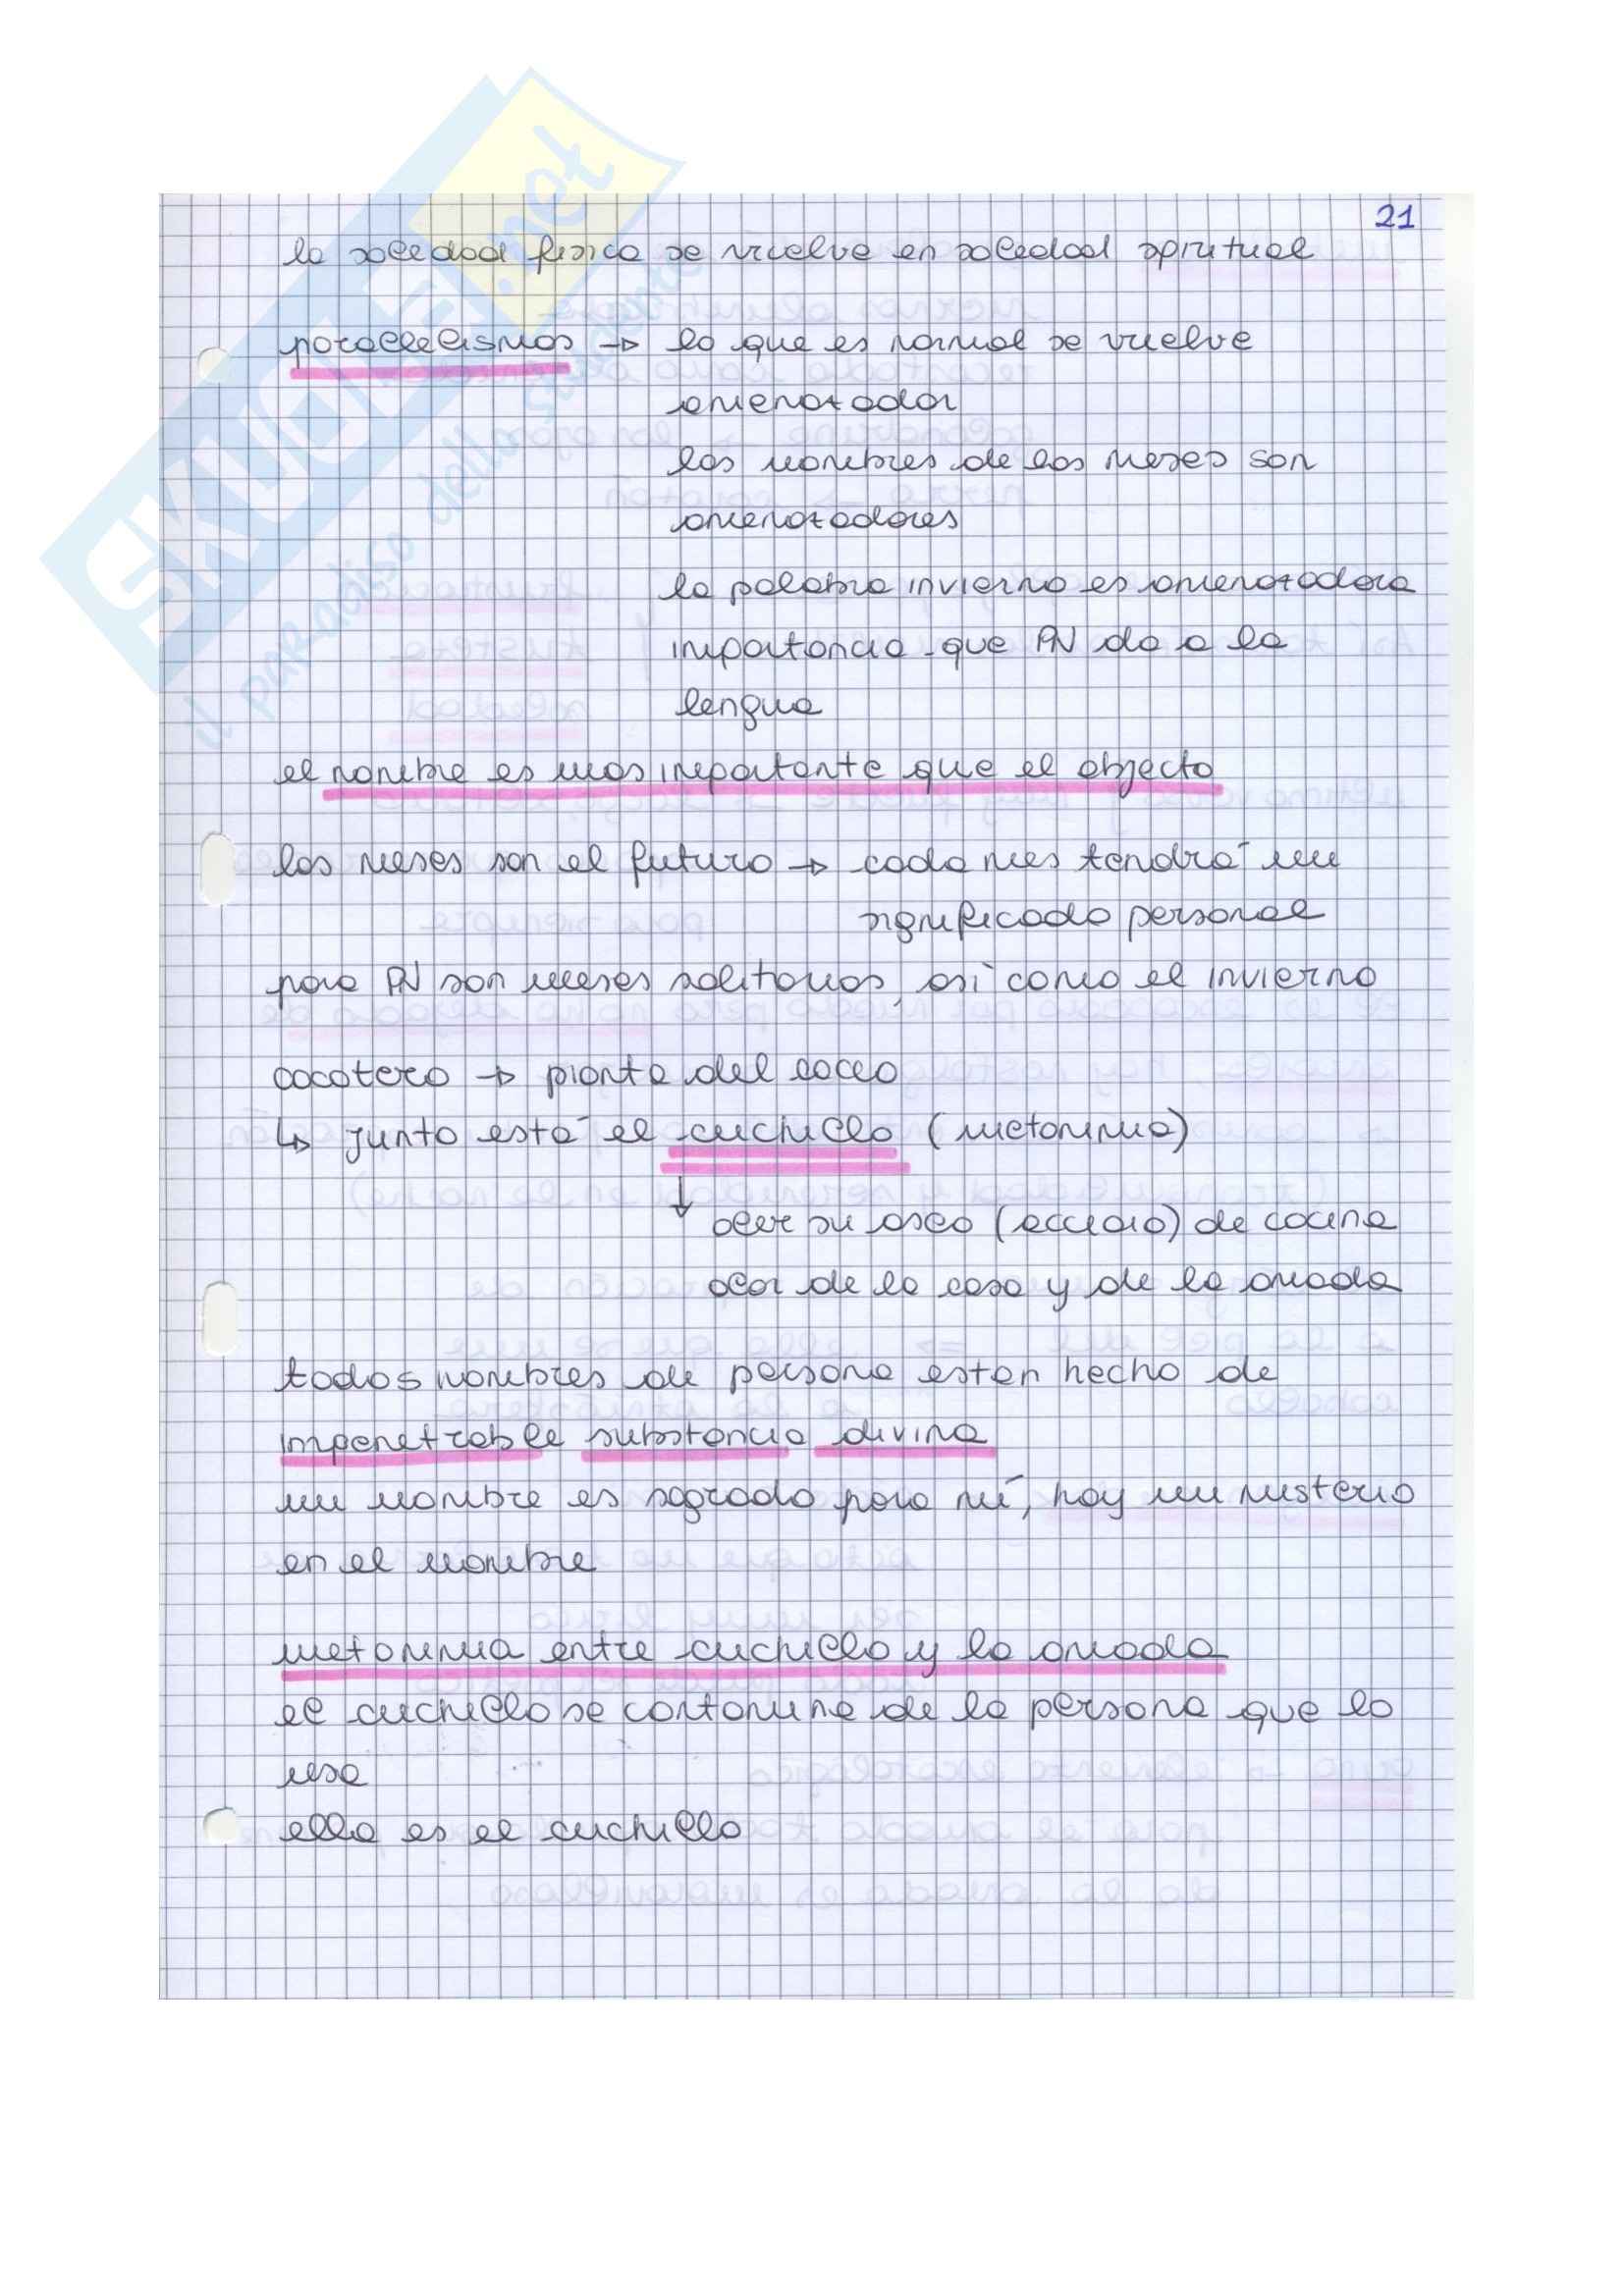 21
la soledad fisica se vuelve en soledad spiritual
parallelismos → lo que es normal se vuelve
amenazador
los nombres de los meses son
amenazadores
la palabra invierno es amenazadora
importancia que PN da a la
lengua
el nombre es mas importante que el objecto
los meses son el futuro → cada mes tendrá un
significado personal
para PN son meses solitarios, asì como el invierno
cocotero → pianta del cocco
↳ junto está el cuchillo (metonimia)
↓
oler su aseo (acciaio) de cocina
olor de la casa y de la amada
todos nombres de persona esten hecho de
impenetrable substancia divina
un nombre es sagrado para mí, hay un misterio
en el nombre
metonimia entre cuchillo y la amada
el cuchillo se contamina de la persona que lo
usa
ella es el cuchillo
SKUOLA.net
il paradiso dello studente